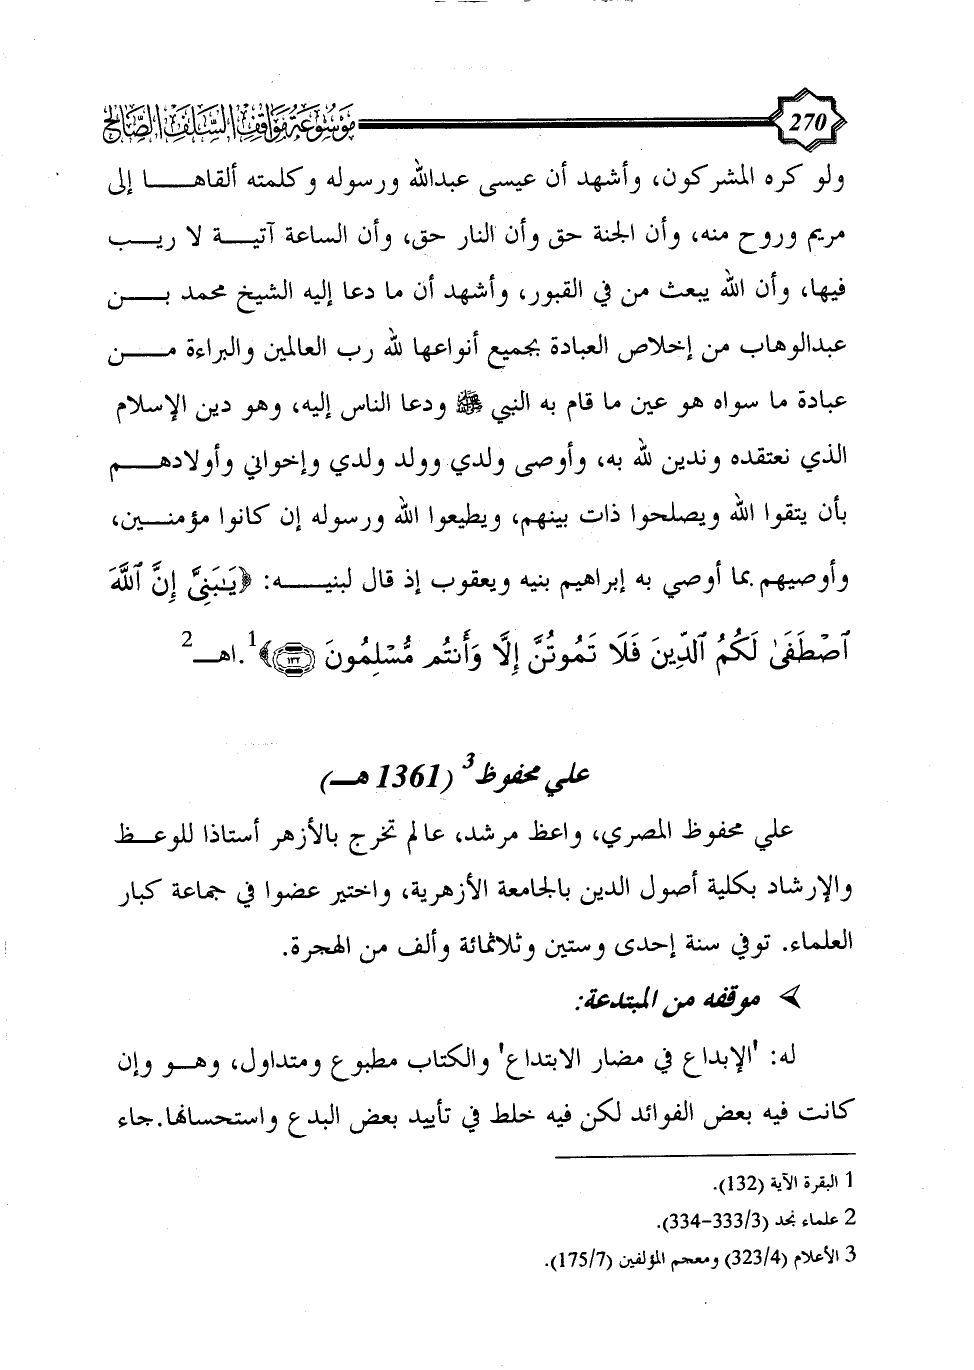 270 موسوعة مواقف السلف الصالح
ولو كره المشركون، وأشهد أن عيسى عبدالله ورسوله وكلمته ألقاهـــا إلى
مريم وروح منه، وأن الجنة حق وأن النار حق، وأن الساعة آتيـــة لا ريـــب
فيها، وأن الله يبعث من في القبور، وأشهد أن ما دعا إليه الشيخ محمد بـــن
عبدالوهاب من إخلاص العبادة بجميع أنواعها لله رب العالمين والبراءة مـــن
عبادة ما سواه هو عين ما قام به النبي ﷺ ودعا الناس إليه، وهو دين الإسلام
الذي نعتقده وندين لله به، وأوصى ولدي وولد ولدي وإخواني وأولادهـــم
بأن يتقوا الله ويصلحوا ذات بينهم، ويطيعوا الله ورسوله إن كانوا مؤمنـــين،
وأوصيهم بما أوصي به إبراهيم بنيه ويعقوب إذ قال لبنيـــه: ﴿يَـٰبَنِىَّ إِنَّ ٱللَّهَ
ٱصْطَفَىٰ لَكُمُ ٱلدِّينَ فَلَا تَمُوتُنَّ إِلَّا وَأَنتُم مُّسْلِمُونَ ١٣٢﴾1.اهـ2
علي محفوظ3 (1361 هـ)
علي محفوظ المصري، واعظ مرشد، عالم تخرج بالأزهر أستاذا للوعـــظ
والإرشاد بكلية أصول الدين بالجامعة الأزهرية، واختير عضوا في جماعة كبار
العلماء. توفي سنة إحدى وستين وثلاثمائة وألف من الهجرة.
➢ موقفه من المبتدعة:
له: 'الإبداع في مضار الابتداع' والكتاب مطبوع ومتداول، وهـــو وإن
كانت فيه بعض الفوائد لكن فيه خلط في تأييد بعض البدع واستحسانها.جاء
1 البقرة الآية (132).
2 علماء نجد (333/3-334).
3 الأعلام (323/4) ومعجم المؤلفين (175/7).